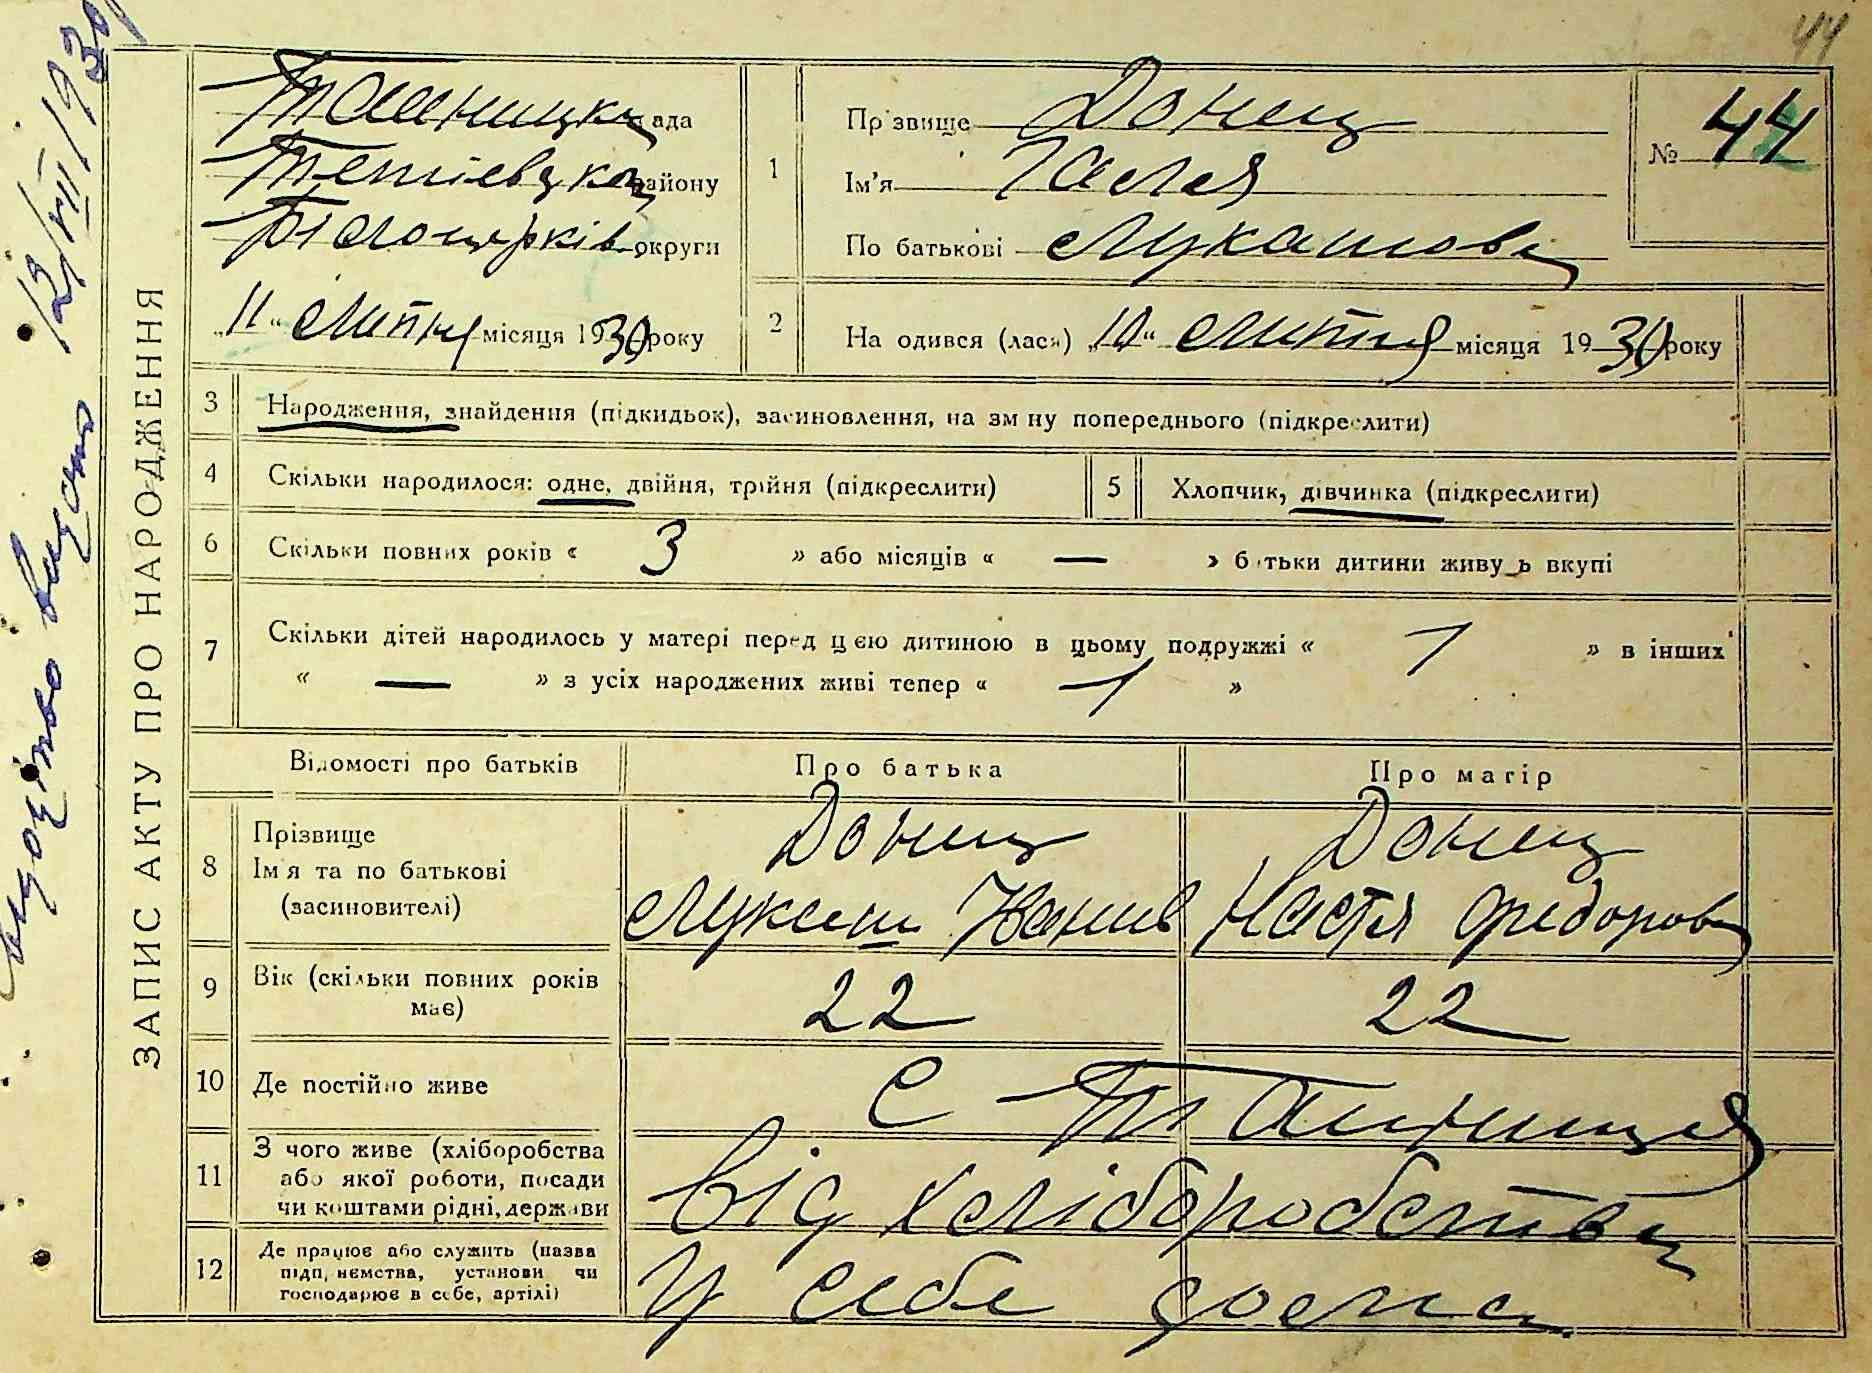 44
ЗАПИС АКТУ ПРО НАРОДЖЕННЯ
свідоцтво видано 12/VII/1930
Ташницька рада
Тетіевськ району
Білоцерків округи
„11“ липня місяця 1930 року
1
Прізвище Донец
Ім'я Галя
По батькові Лукашова
№ 44
2
На одився (лася) „10“ липня місяця 1930 року
3
Народження, знайдення (підкидьок), засиновлення, на зм ну попереднього (підкреслити)
4
Скільки народилося: одне, двійня, трійня (підкреслити)
5
Хлопчик, дівчинка (підкреслити)
6
Скільки повних років « 3 » або місяців « — » батьки дитини живуть вкупі
7
Скільки дітей народилось у матері перед цією дитиною в цьому подружжі « 1 » в інших
« — » з усіх народжених живі тепер « 1 »
Відомості про батьків
Про батька
Про матір
8
Прізвище
Ім'я та по батькові
(засиновителі)
Донец
Лукаш Іванів
Донец
Настя Федорова
9
Вік (скільки повних років
має)
22
22
10
Де постійно живе
с Ташниця
11
З чого живе (хліборобства
або якої роботи, посади
чи коштами рідні, держави
від хліборобства
12
Де працює або служить (назва
підп, ємства, установи чи
господарює в себе, артілі)
У себе дома